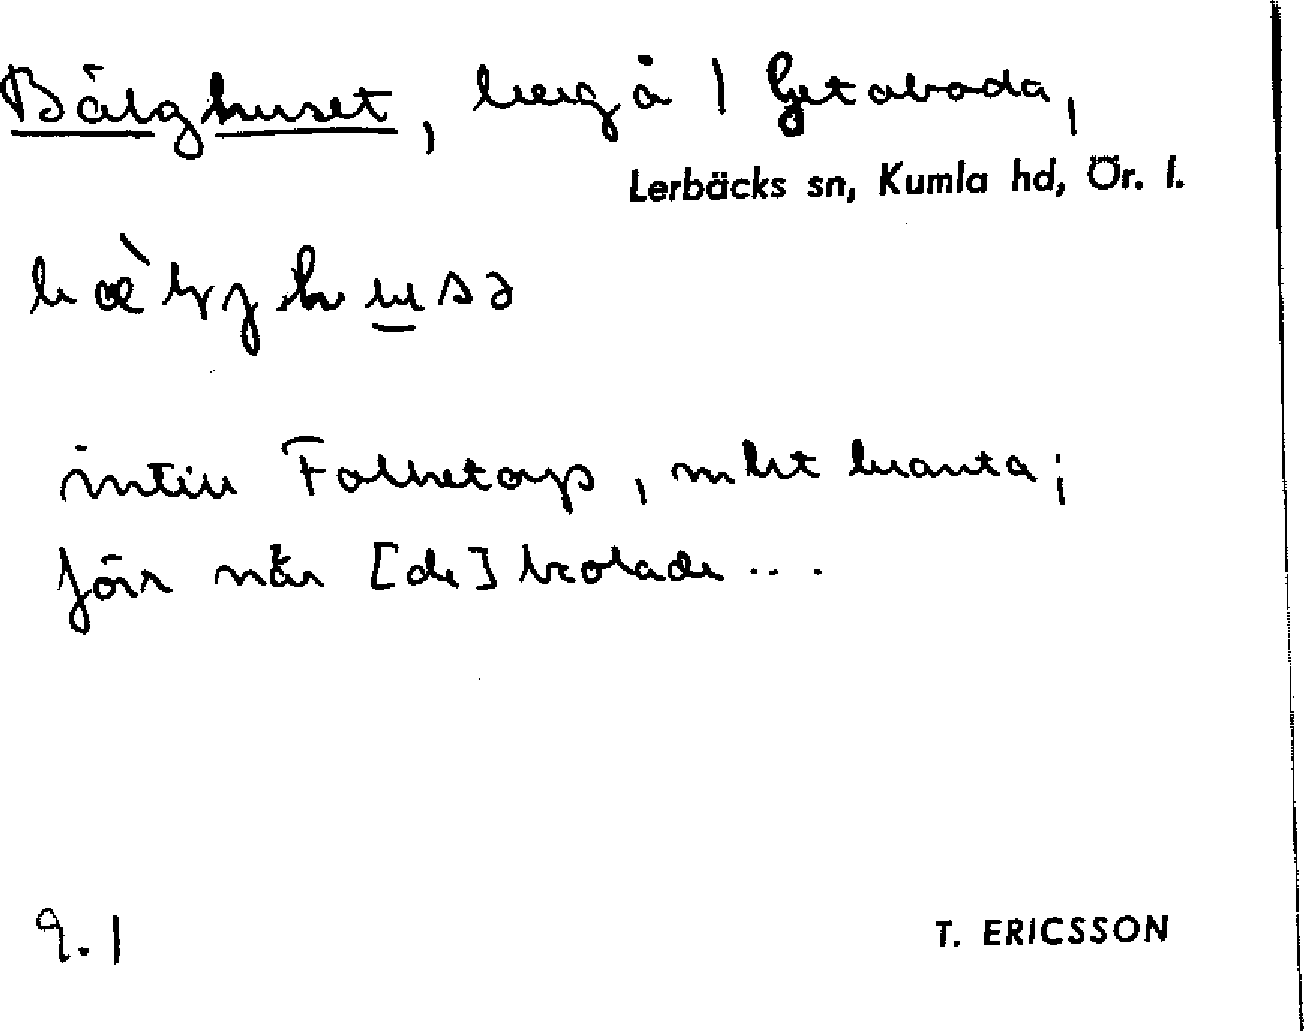 Bälghuset, berg å 1 Getaboda,
Lerbäcks sn, Kumla hd, Ör. l.
bæ̀lyjhusə
intill Folketorp, mkt branta;
förr när [de] kolade ...
9.1
T. ERICSSON